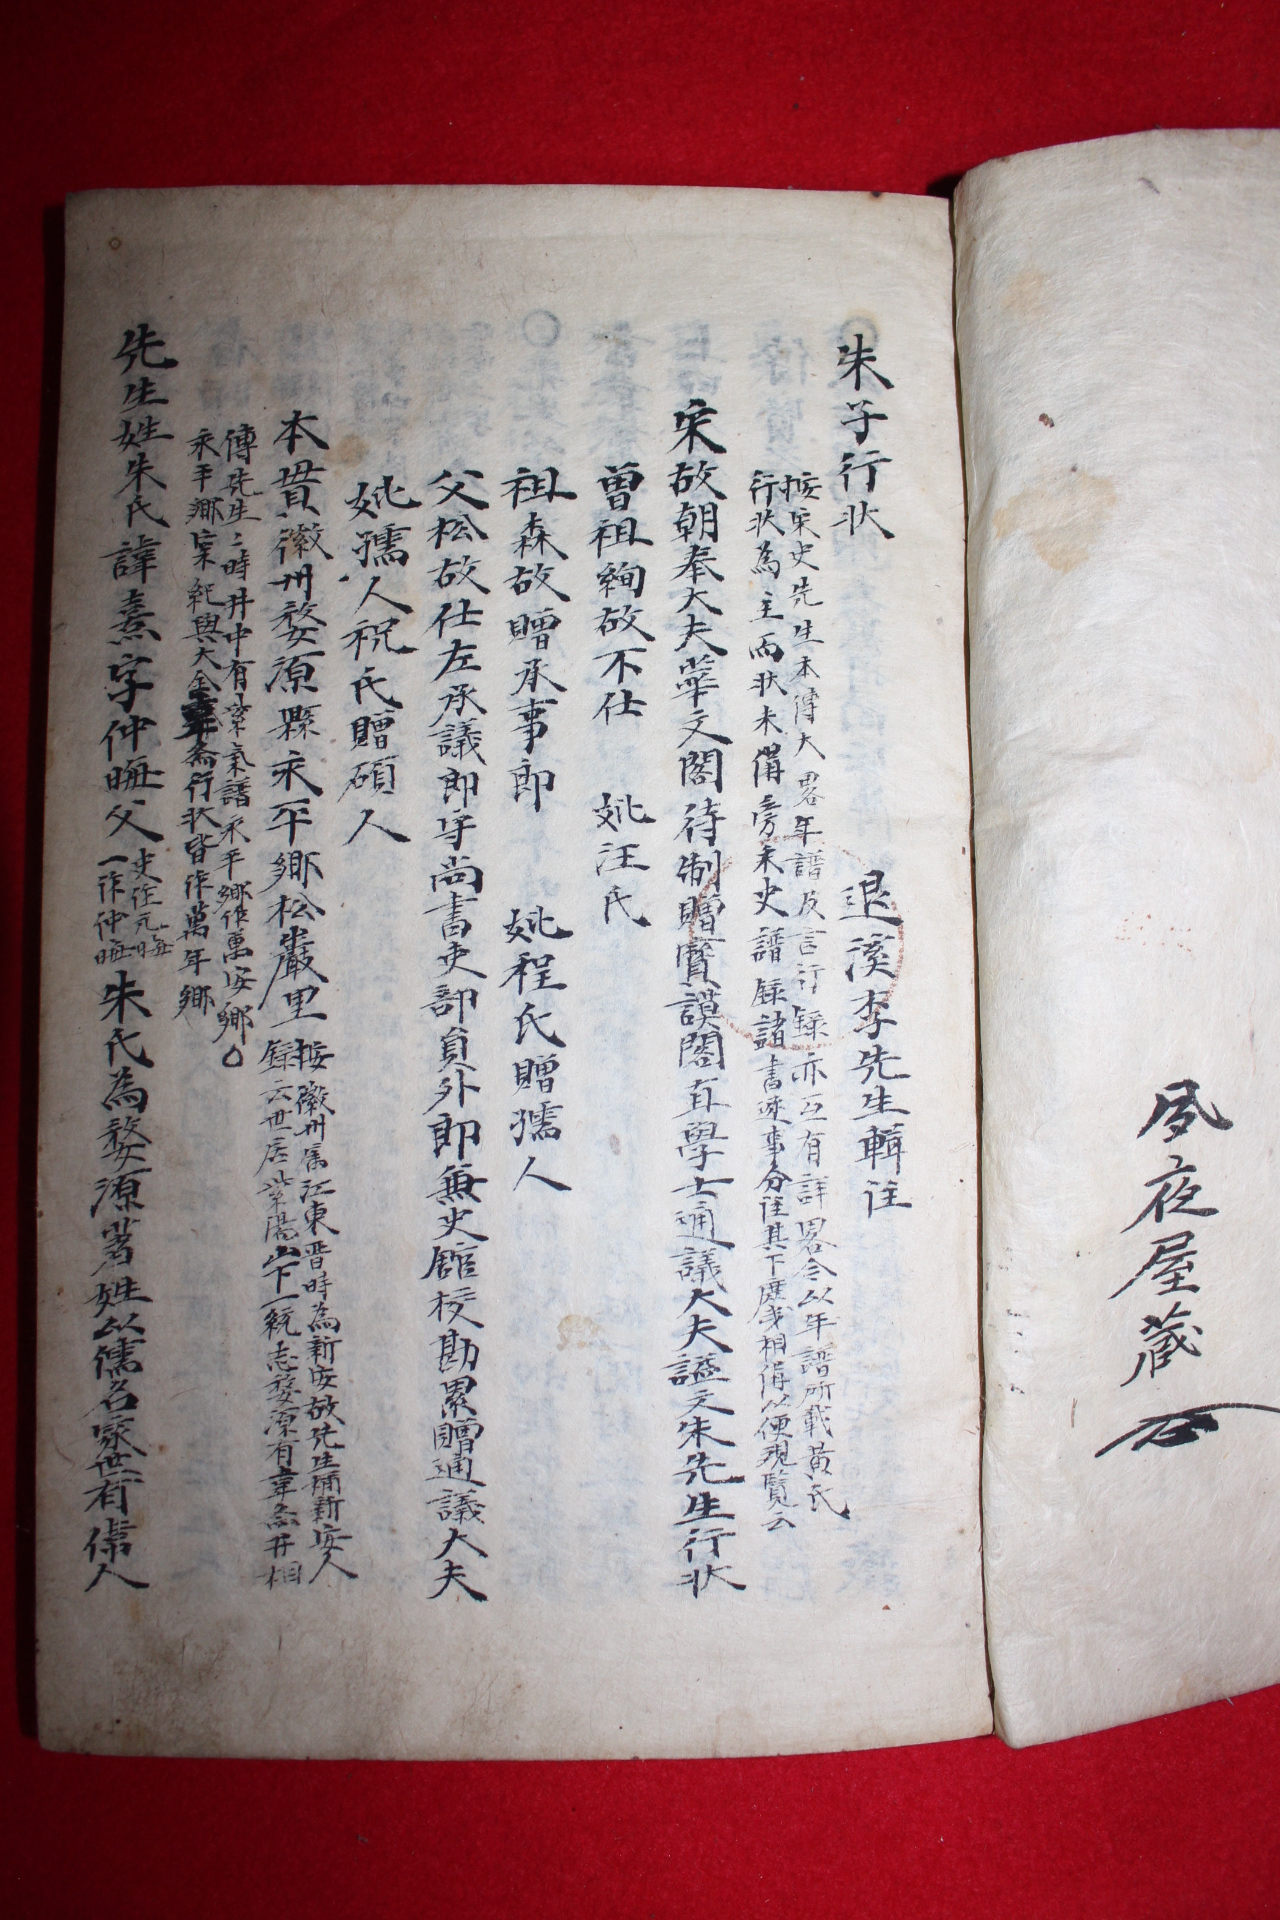 夙夜屋蔵
朱子行狀 退溪李先生輯註
按宋史先生本傳大畧年譜及言行錄亦互有詳畧今以年譜所載黃氏
行狀為主而狀未備旁采史譜錄諸書逐事分註其下庶幾相備以便觀覽云
宋故朝奉大夫華文閣待制贈寶謨閣直學士通議大夫謚文朱先生行狀
曾祖絢故不仕 妣汪氏
祖森故贈承事郎 妣程氏贈孺人
父松故仕左承議郎守尚書吏部員外郎兼史館校勘累贈通議大夫
妣孺人祝氏贈碩人
本貫徽州婺源縣永平鄉松巖里
按徽州屬江東晋時為新安故先生稱新安人
錄云世居紫陽山下一統志婺源有韋齋井相
傳先生生時井中有紫氣譜永平鄉作萬安鄉
永平鄉宋紀與大全韋齋行狀皆作萬年鄉
先生姓朱氏諱熹字仲晦父
史作元晦
一作仲晦
朱氏為婺源著姓以儒名家世有偉人